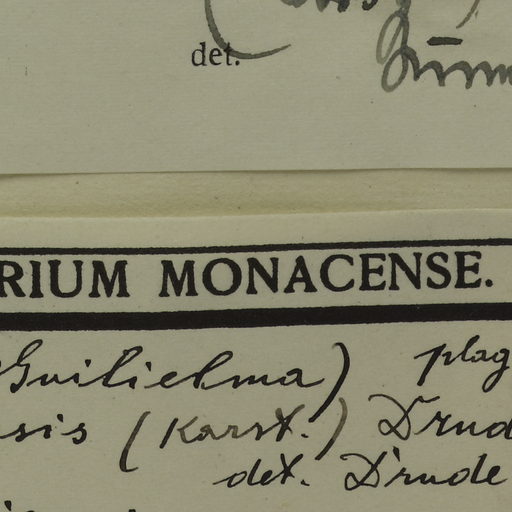 det.
RIUM MONACENSE.
Guilielma) plag
sis (Karst.) Drud
det. Drude